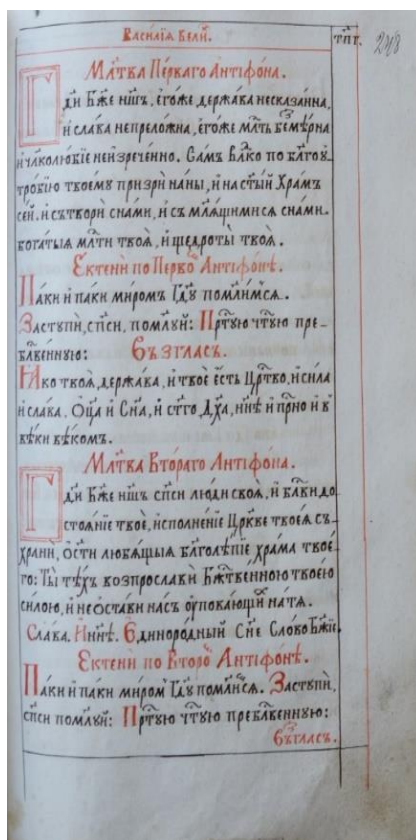 Василїѧ Вели҃. тп҃г. 248
Мл҃тва Пе́рваго Антїфо́на.
Гд҃и Бж҃е нш҃ъ, є҆гѡ́же держа́ва несказа́нна,
и҆ сла́ва непрело́жна, є҆гѡ́же мл҃ть безмѣ́рна
и҆ чл҃колю́бїе неи҆зрече́нно. Са́мъ Влⷣко по блг҃оу҆-
тро́бїю твоемꙋ̀ при́зри на́ны, и҆ на ст҃ы́й Хра́мъ
се́й. и҆ сътворѝ сна́ми, и҆ съ млѧ́щимисѧ сна́ми.
бога́тыѧ мл҃ти твоѧ̀, и҆ щедро́ты твоѧ̀.
Єктенїѝ по Перво҃ Антїфо́нѣ.
Па́ки и҆ па́ки ми́ромъ Гдⷭ҇ꙋ помл҃и́мсѧ.
Застꙋпѝ, сп҃сѝ, помл҃ꙋй: Прⷭ҇тꙋю чⷭ҇тꙋю пре-
блⷭ҇ве́ннꙋю: Въ́згласъ.
Ꙗ҆́ко твоѧ̀ держа́ва, и҆ твоѐ є҆́сть Црⷭ҇тво, и҆ си́ла
и҆ сла́ва. Ѻ҆ц҃а̀ и҆ Сн҃а, и҆ ст҃го Дх҃а, нн҃ѣ и҆ прⷭ҇но и҆ в̾
вѣ́ки вѣ́комъ.
Мл҃тва Втора́го Антїфо́на.
Гд҃и Бж҃е нш҃ъ сп҃сѝ лю́ди своѧ̀, и҆ блⷭ҇вѝ до-
стоѧ́нїе твоѐ, и҆сполне́нїе Цр҃кве твоеѧ̀ съ-
хранѝ, ѡ҆ст҃ѝ лю́бѧщыѧ благолѣ́пїе хра́ма твое-
го̀: Ты̀ тѣ́хъ возпросла́ви Бжⷭ҇твенною твоею
си́лою, и҆ не ѡ҆ста́ви на́съ ᲂу҆пова́ющи҃ на тѧ̀.
Сла́ва. И҆ нн҃ѣ. Є҆диноро́дный Сн҃е Сло́во Бж҃їи.
Єктенїѝ по Второ҃ Антїфо́нѣ.
Па́ки и҆ па́ки ми́ром̾ Гдⷭ҇ꙋ помл҃и́сѧ. Застꙋпѝ,
сп҃сѝ помл҃ꙋй: Прⷭ҇тꙋю чⷭ҇тꙋю преблⷭ҇ве́ннꙋю:
Въ́згласъ.